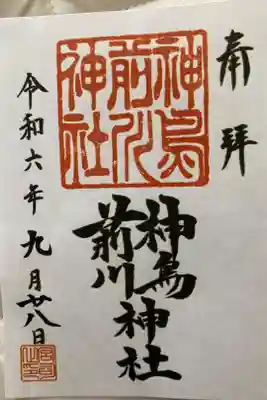 奉拝
神鳥
前川
神社
神鳥
前川神社
令和六年九月廿八日